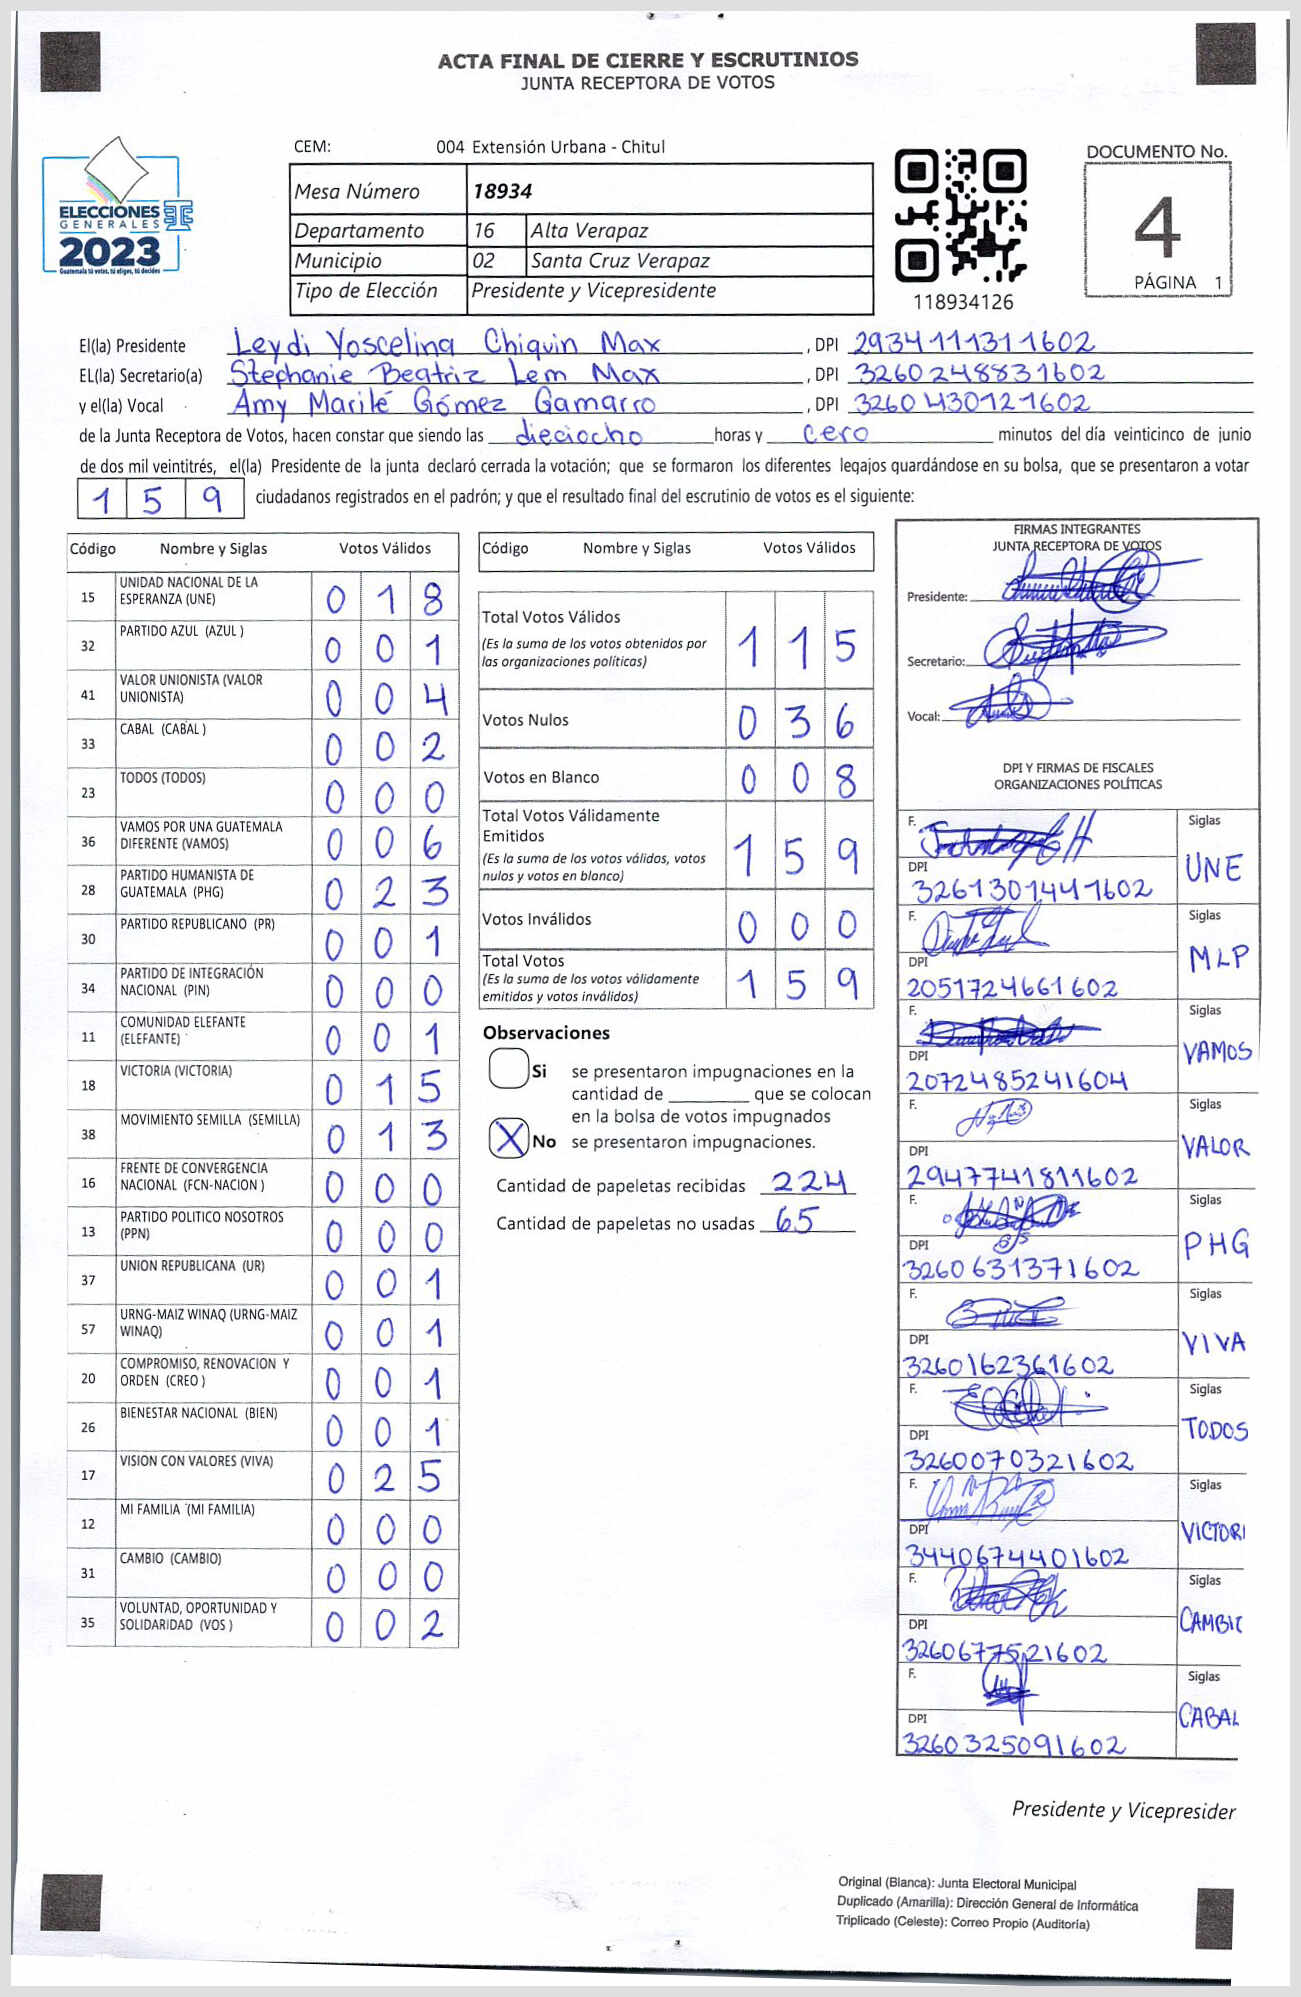 ACTA FINAL DE CIERRE Y ESCRUTINIOS
JUNTA RECEPTORA DE VOTOS
ELECCIONES
GENERALES
2023
Guatemala tú votes, tú eliges, tú decides
CEM: 004 Extensión Urbana - Chitul
Mesa Número 18934
Departamento 16 Alta Verapaz
Municipio 02 Santa Cruz Verapaz
Tipo de Elección Presidente y Vicepresidente
118934126
DOCUMENTO No.
4
PÁGINA 1
El(la) Presidente Leydi Yoscelina Chiquin Max, DPI 2934111311602
EL(la) Secretario(a) Stephanie Beatriz Lem Max, DPI 3260248831602
y el(la) Vocal Amy Marilé Gómez Gamarro, DPI 3260430121602
de la Junta Receptora de Votos, hacen constar que siendo las dieciocho horas y cero minutos del día veinticinco de junio
de dos mil veintitrés, el(la) Presidente de la junta declaró cerrada la votación; que se formaron los diferentes legajos quardándose en su bolsa, que se presentaron a votar
1 5 9 ciudadanos registrados en el padrón; y que el resultado final del escrutinio de votos es el siguiente:
Código Nombre y Siglas Votos Válidos
15 UNIDAD NACIONAL DE LA ESPERANZA (UNE) 0 1 8
32 PARTIDO AZUL (AZUL ) 0 0 1
41 VALOR UNIONISTA (VALOR UNIONISTA) 0 0 4
33 CABAL (CABAL ) 0 0 2
23 TODOS (TODOS) 0 0 0
36 VAMOS POR UNA GUATEMALA DIFERENTE (VAMOS) 0 0 6
28 PARTIDO HUMANISTA DE GUATEMALA (PHG) 0 2 3
30 PARTIDO REPUBLICANO (PR) 0 0 1
34 PARTIDO DE INTEGRACIÓN NACIONAL (PIN) 0 0 0
11 COMUNIDAD ELEFANTE (ELEFANTE) 0 0 1
18 VICTORIA (VICTORIA) 0 1 5
38 MOVIMIENTO SEMILLA (SEMILLA) 0 1 3
16 FRENTE DE CONVERGENCIA NACIONAL (FCN-NACION ) 0 0 0
13 PARTIDO POLITICO NOSOTROS (PPN) 0 0 0
37 UNION REPUBLICANA (UR) 0 0 1
57 URNG-MAIZ WINAQ (URNG-MAIZ WINAQ) 0 0 1
20 COMPROMISO, RENOVACION Y ORDEN (CREO ) 0 0 1
26 BIENESTAR NACIONAL (BIEN) 0 0 1
17 VISION CON VALORES (VIVA) 0 2 5
12 MI FAMILIA (MI FAMILIA) 0 0 0
31 CAMBIO (CAMBIO) 0 0 0
35 VOLUNTAD, OPORTUNIDAD Y SOLIDARIDAD (VOS ) 0 0 2
Código Nombre y Siglas Votos Válidos
Total Votos Válidos 1 1 5
(Es la suma de los votos obtenidos por
las organizaciones políticas)
Votos Nulos 0 3 6
Votos en Blanco 0 0 8
Total Votos Válidamente
Emitidos 1 5 9
(Es la suma de los votos válidos, votos
nulos y votos en blanco)
Votos Inválidos 0 0 0
Total Votos 1 5 9
(Es la suma de los votos válidamente
emitidos y votos inválidos)
Observaciones
Si se presentaron impugnaciones en la
cantidad de ________ que se colocan
en la bolsa de votos impugnados
X No se presentaron impugnaciones.
Cantidad de papeletas recibidas 224
Cantidad de papeletas no usadas 65
FIRMAS INTEGRANTES
JUNTA RECEPTORA DE VOTOS
Presidente:
Secretario:
Vocal:
DPI Y FIRMAS DE FISCALES
ORGANIZACIONES POLÍTICAS
F. Siglas
DPI UNE
3261301441602
F. Siglas
DPI MLP
2051724661602
F. Siglas
DPI VAMOS
2072485241604
F. Siglas
DPI VALOR
2947741811602
F. Siglas
DPI PHG
3260631371602
F. Siglas
DPI VIVA
3260162361602
F. Siglas
DPI TODOS
3260070321602
F. Siglas
DPI VICTORI
3440674401602
F. Siglas
DPI CAMBIC
3260677521602
F. Siglas
DPI CABAL
3260325091602
Presidente y Vicepresider
Original (Blanca): Junta Electoral Municipal
Duplicado (Amarilla): Dirección General de Informática
Triplicado (Celeste): Correo Propio (Auditoría)